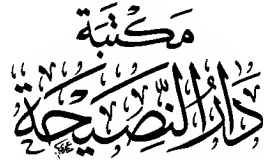 مكتبة
دار النصيحة